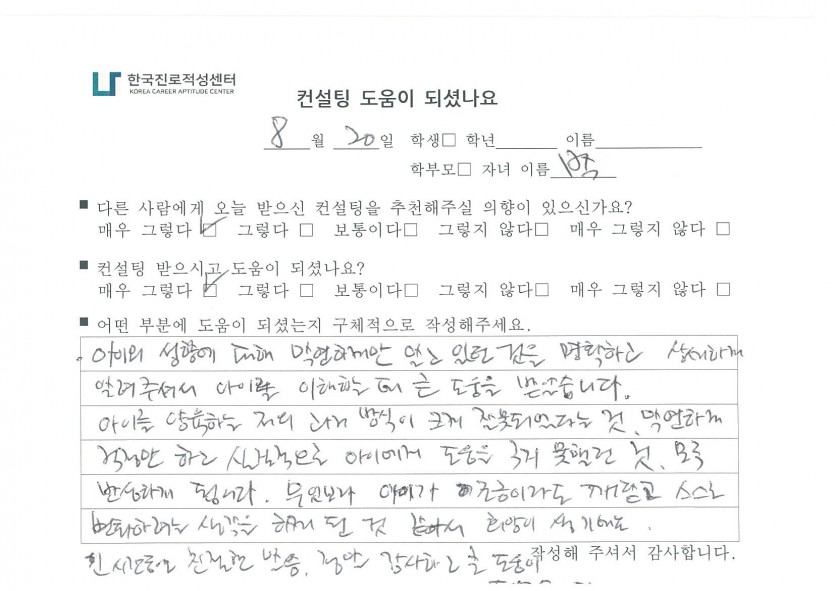 한국진로적성센터
KOREA CAREER APTITUDE CENTER
컨설팅 도움이 되셨나요
8 월 20 일 학생□ 학년 이름
학부모□ 자녀 이름
■ 다른 사람에게 오늘 받으신 컨설팅을 추천해주실 의향이 있으신가요?
매우 그렇다 ☑ 그렇다 □ 보통이다□ 그렇지 않다□ 매우 그렇지 않다 □
■ 컨설팅 받으시고 도움이 되셨나요?
매우 그렇다 ☑ 그렇다 □ 보통이다□ 그렇지 않다□ 매우 그렇지 않다 □
■ 어떤 부분에 도움이 되셨는지 구체적으로 작성해주세요.
아이의 성향에 대해 막연하게만 알고 있던 것을 명확하고 상세하게
알려주셔서 아이를 이해하는데 큰 도움을 받았습니다.
아이를 양육하는 저의 과거 방식이 크게 잘못되었다는 것, 막연하게
걱정만 하고 실질적으로 아이에게 도움을 주지 못했던 것, 모두
반성하게 됩니다. 무엇보다 아이가 조금이라도 깨닫고 스스로
변화하려는 생각을 하게 된 것 같아서 희망이 생기네요.
친절한 감사하고 큰 도움이
작성해 주셔서 감사합니다.